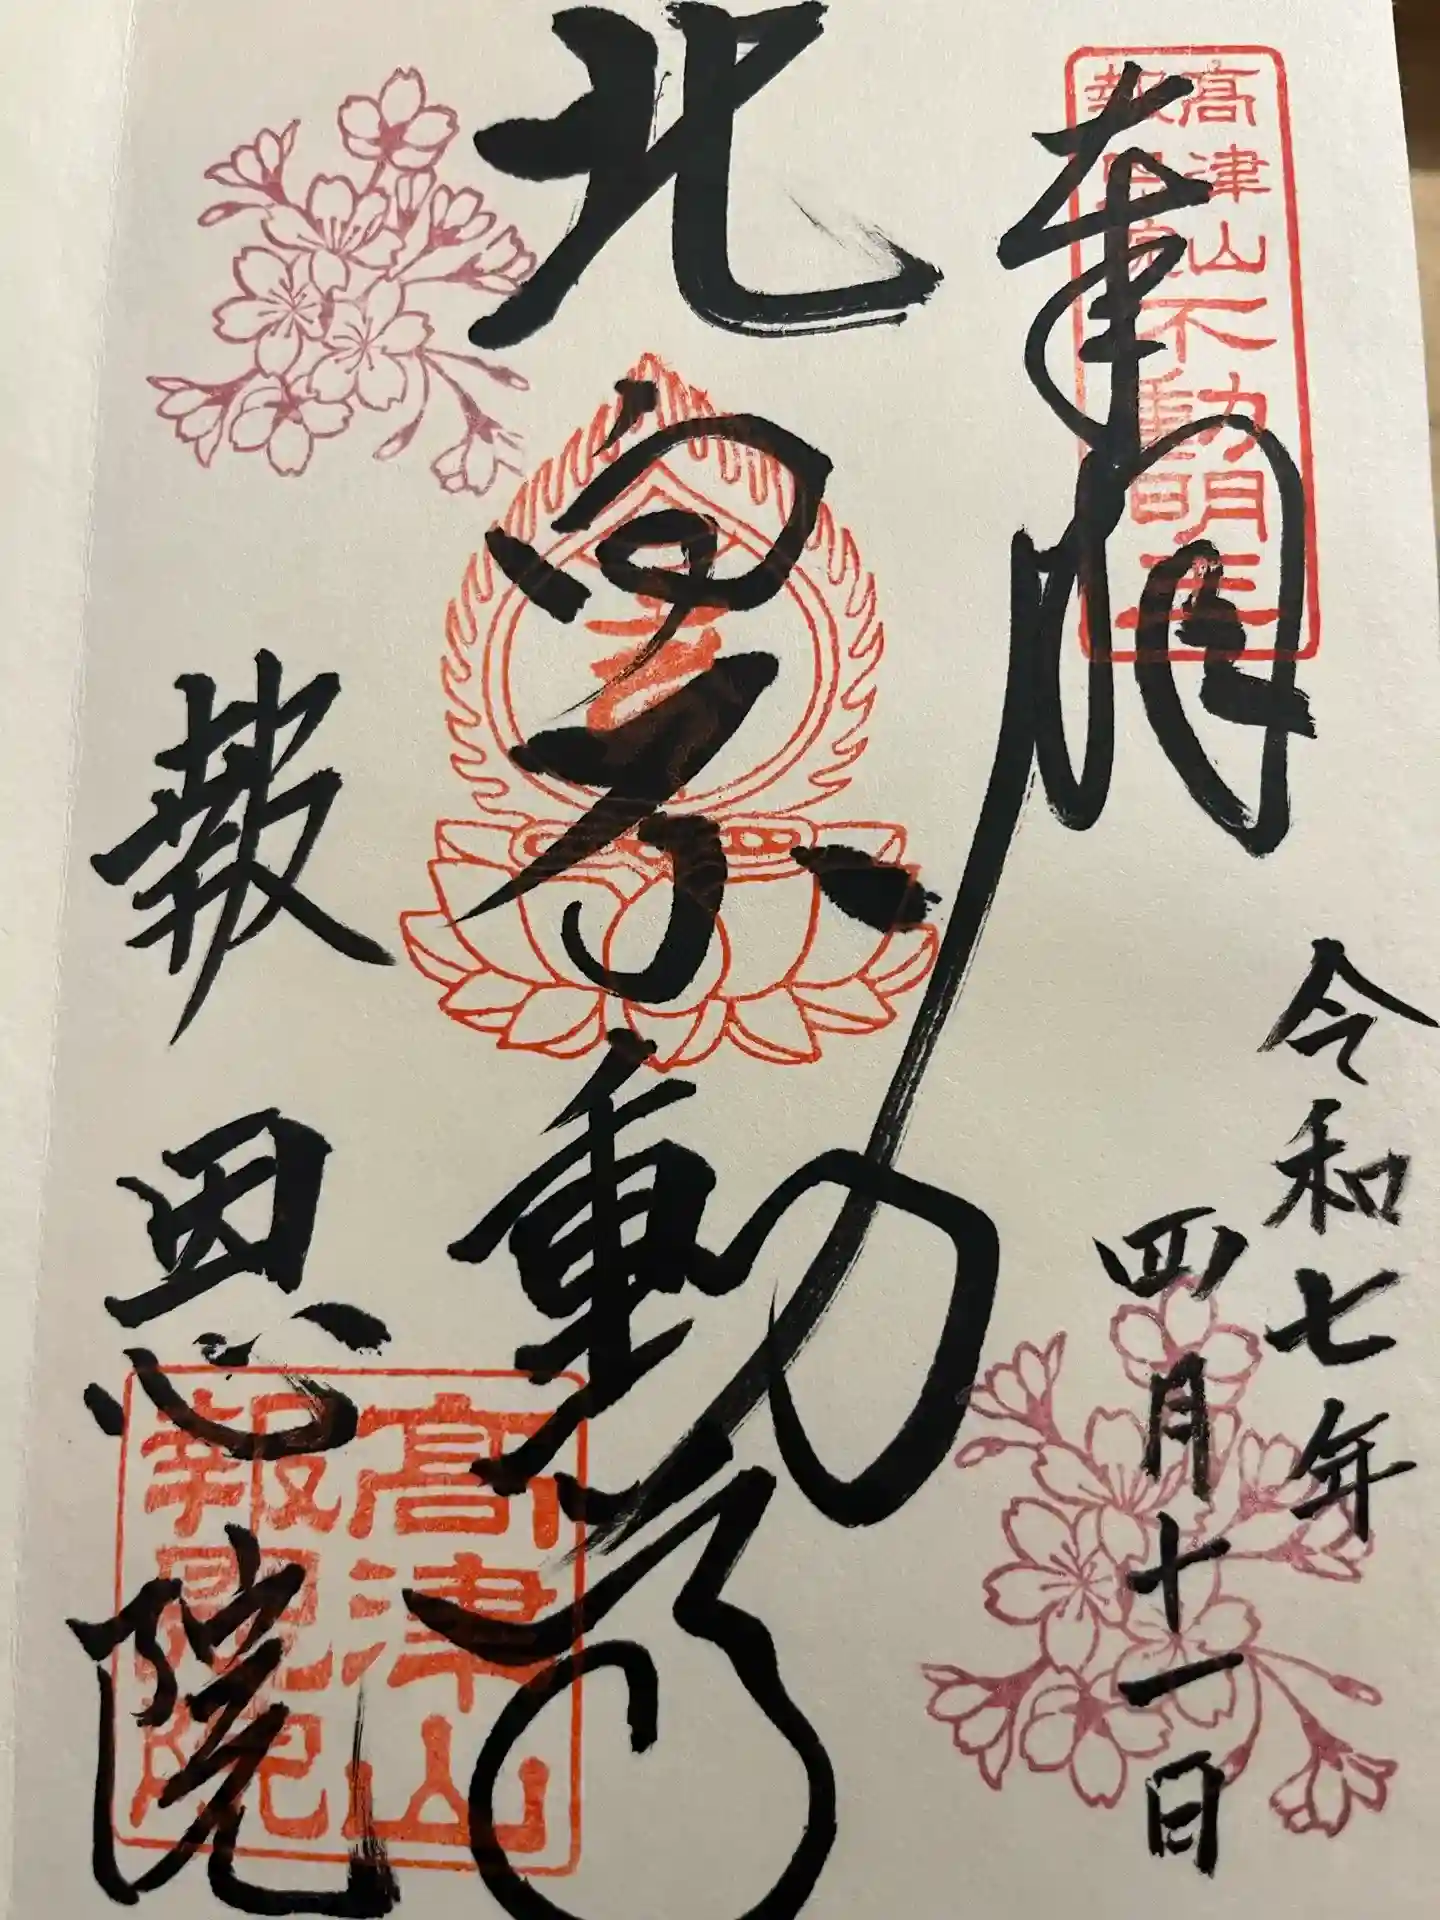 奉拝
高津山不動明王
報恩院
令和七年
四月十一日
北向不動尊
報恩院
高津山
報恩院